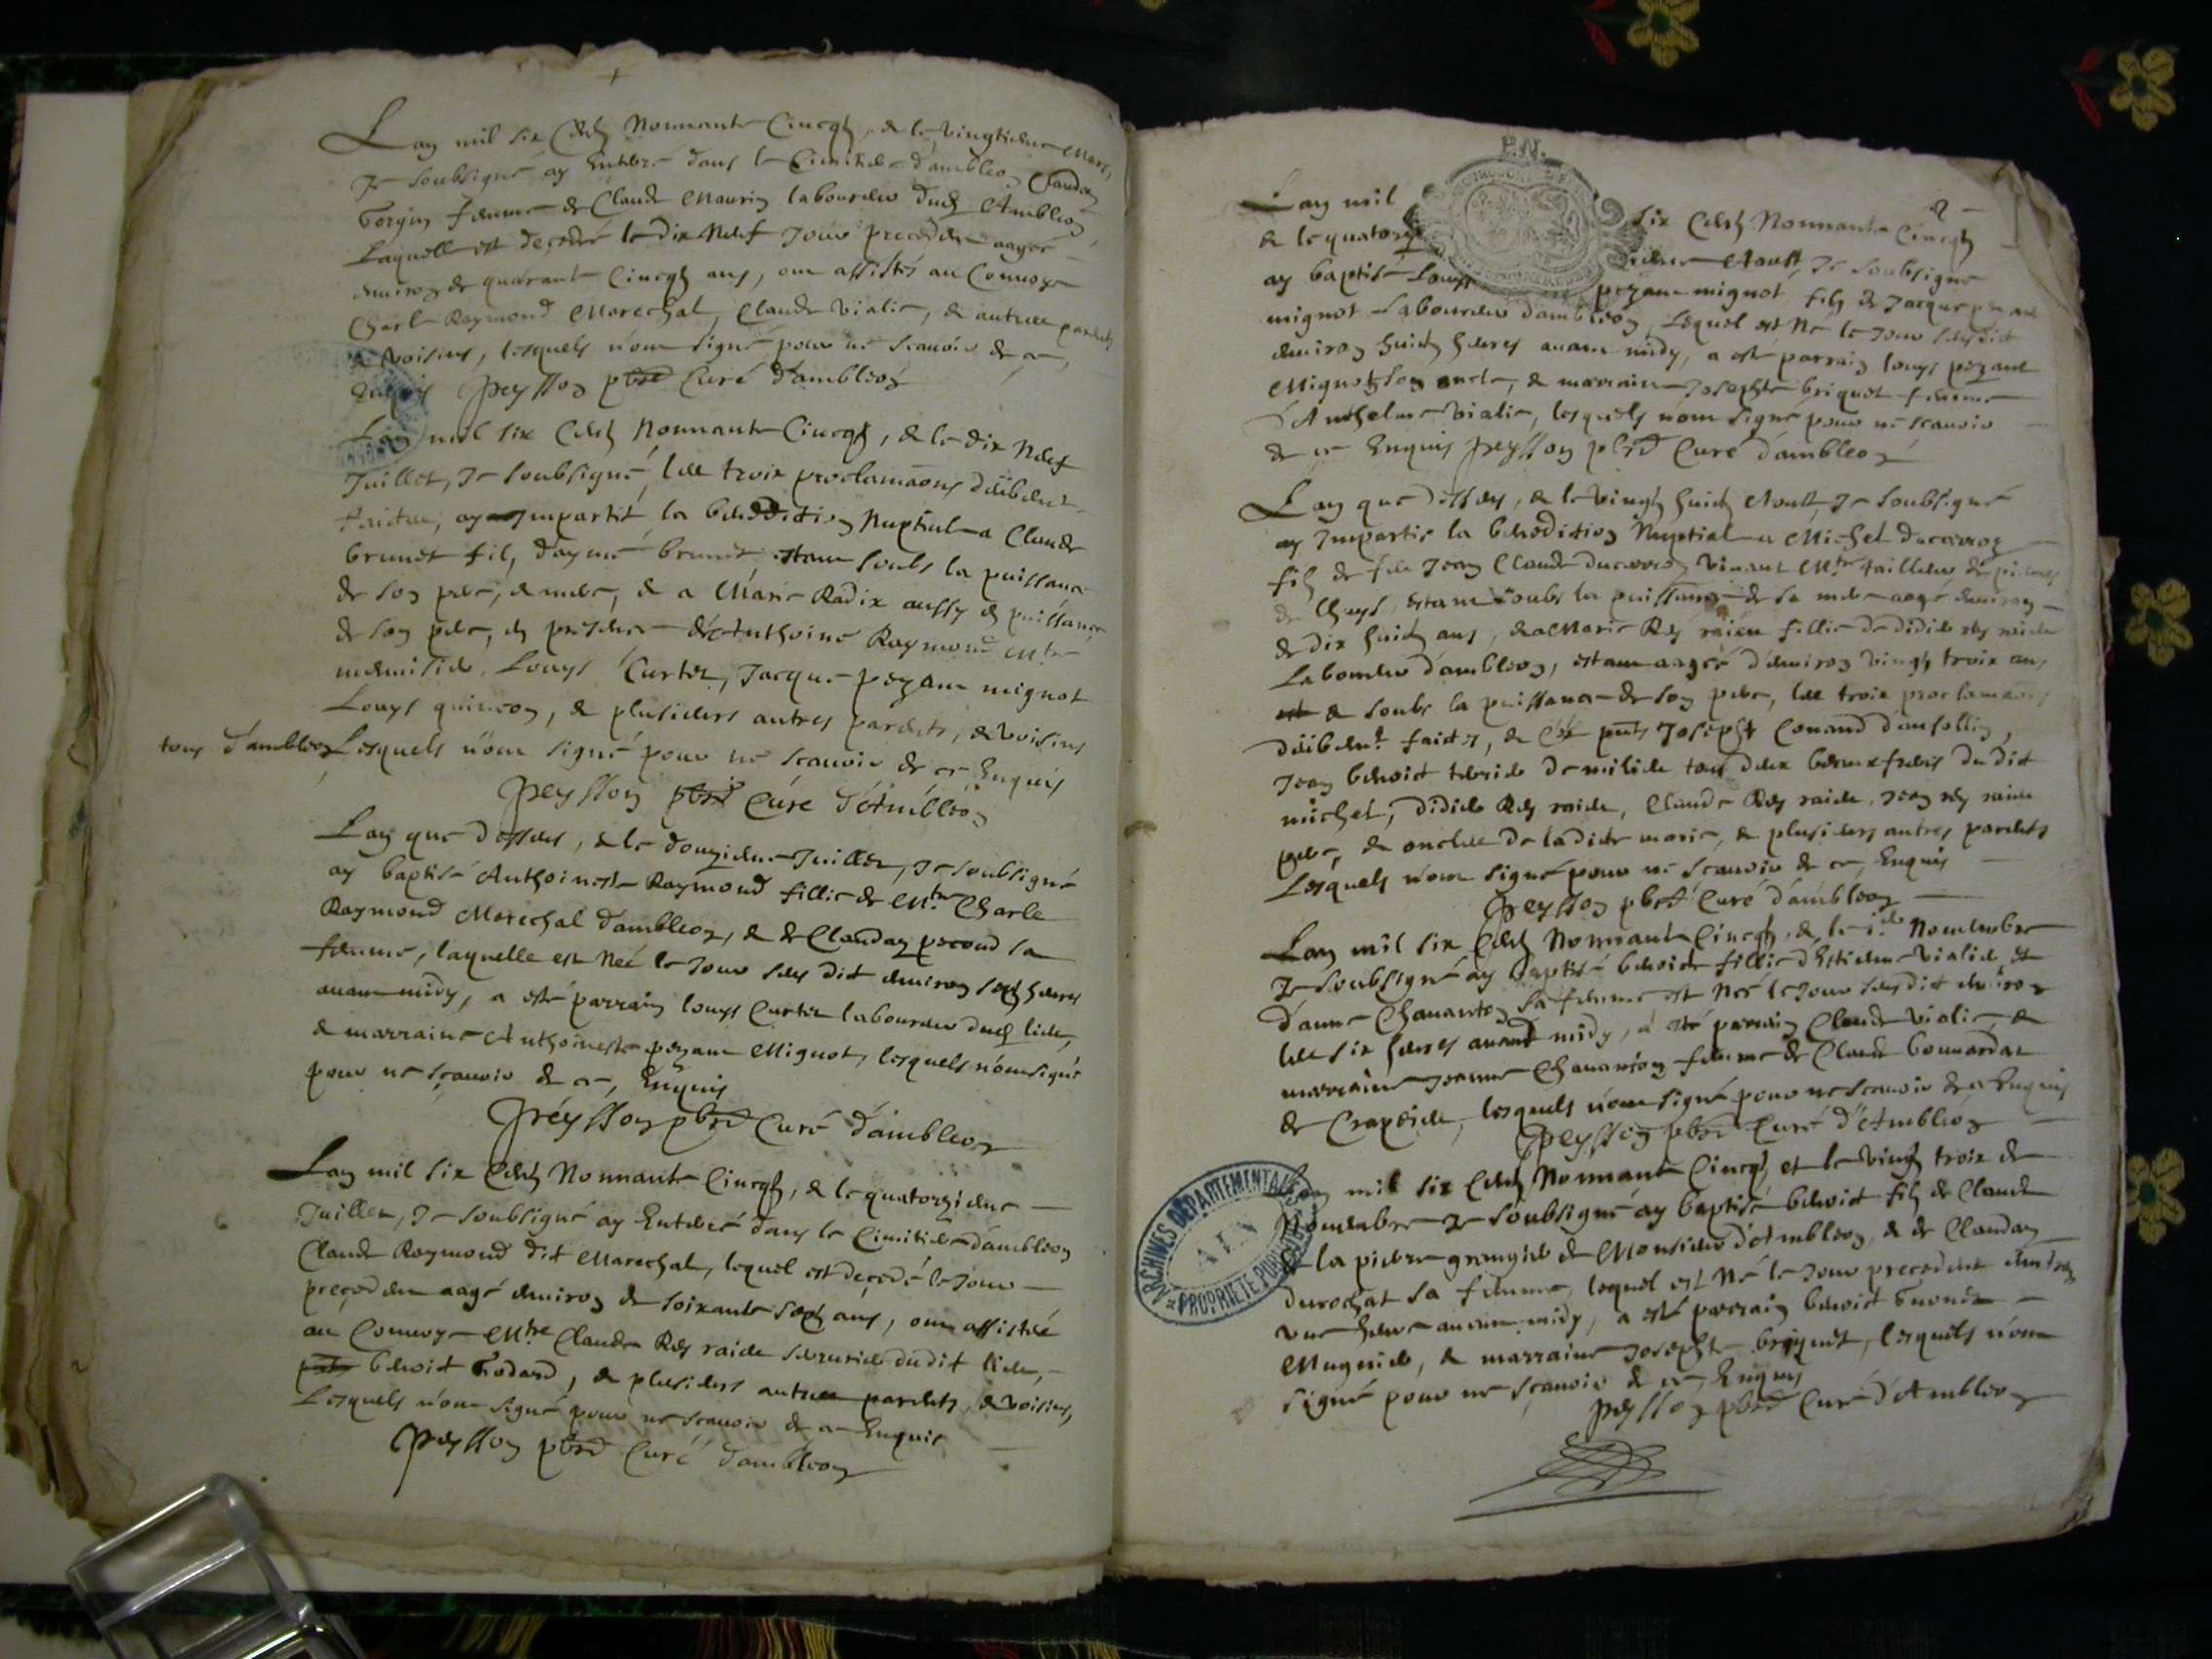 Lan mil six Centz Nonnante Cincqz, & le vingtieme Mars,
Je soubsigné ay Enterré dans le Cimitiere d'ambleon Claudaz
femme de Claude Maurin laboureur dudt Ambleon
Laquelle est decedée le dix Neuf Jour precedent aagée
environ de quarante Cincqz ans, ont assistés au Convoye
Charle Raymond Marechal, Claude Vialie, & autres parents
& voisins, lesquels n'ont signé pour ne scavoir de ce,
Enquis Peysson pbre Curé d'ambleon
Lan mil six Centz Nonnante Cincqz, & le dix Neuf
Juillet, Je soubsigné, les troix proclamaõns deüement
faictes, ay Impartit la benediction Nuptiale a Claude
brunet filz d'aymé brunet estant soubs la puissance
de son pere, & mere, & a Marie Radix aussy en puissance
de son pere, en presence d'Anthoine Raymond Mtre
menuisier, Louys Curtet, Jacque pezant mignot
Louys quinson, & plusieurs autres parents, & voisins
tous d'ambleon Lesquels n'ont signé pour ne scavoir de ce Enquis
Peysson pbre Curé d'Ambléon
Lan que dessus, & le douzieme Juillet, Je soubsigné
ay baptisé Anthoinette Raymond fillie de Mtre Charle
Raymond Marechal d'ambleon, & de Claudaz pecoud sa
femme, laquelle est Née le Jour sus dit environ sept heures
avant midy, a esté parrain louys Curtet laboureur dudt lieu,
& marraine Anthoinette pezant Mignot, lesquels n'ont signé
pour ne scavoir de ce, Enquis
Peysson pbre Curé d'ambleon
Lan mil six Centz Nonnante Cincqz, & le quatorzieme
Juillet, Je soubsigné ay Enterré dans le Cimitiere d'ambleon
Claude Raymond dit Marechal, lequel est decedé le Jour
precedent aagé environ de soixante sept ans, ont assistée
au Convoye Mtre Claude Rey raide serrurier dudit lieu,
benoit Godard, & plusieurs autres parents, & voisins,
Lesquels n'ont signé pour ne scavoir de ce Enquis
Peysson pbre Curé d'ambleon
P.N.
2
Lan mil six Centz Nonnante Cincqz
& le quatorzieme Aoust, Je soubsigné
ay baptisé Louys pezant mignot filz de Jacque pezant
mignot laboureur d'ambleon, lequel est Né le Jour susdit
environ huict heures avant midy, a esté parrain louys pezant
Mignot son oncle, & marraine Josephte briquet femme
d'Anthelme vialie, lesquels n'ont signé pour ne scavoir
de ce Enquis Peysson pbre Curé d'ambleon
Lan que dessus, & le vingt huict Aoust, Je soubsigné
ay Impartie la benediction Nuptiale a Michel
filz de feu Jean Claude vivant Mtre tailleur de pierres
de Cheys, estant soubs la puissance de sa mere aagé environ
de dix huict ans, & a Marie Rey raide fillie de didier rey raide
Laboureur d'ambleon, estant aagée d'environ vingt troix ans
& soubs la puissance de son pere, les troix proclamaõns
deüement faictes, & Joseph Conand d'ansollin,
Jean benoict tous deux beaux freres dudit
michel, didier Rey raide, Claude Rey raide, Jean rey raide
pere, & oncles de ladite marie, & plusieurs autres parents
Lesquels n'ont signé pour ne scavoir de ce, Enquis
Peysson pbre Curé d'ambleon
Lan mil six Centz Nonnante Cincqz, & le Novembre
Je soubsigné ay baptisé benoite fillie d'Estienne vialie et
d'anne sa femme est Née le Jour susdit environ
les six heures avant midy, a esté parrain Claude vialie, &
marraine Jeanne femme de Claude bonnardet
de lesquels n'ont signé pour ne scavoir de ce Enquis
Peysson pbre Curé d'Ambléon
Lan mil six Centz Nonnante Cincqz, et le vingt troix de
Novembre Je soubsigné ay baptisé benoict filz de Claude
de la pierre grangier de Monsieur d'Ambleon, & de Claudaz
durochat sa femme, lequel est Né le Jour precedent environ
une heure avant midy, a esté parrain benoict
Mugnier, & marraine Josephte briquet, lesquels n'ont
signé pour ne scavoir de ce, Enquis
Peysson pbre Curé d'Ambleon
ARCHIVES DEPARTEMENTALES
AIN
PROPRIETE PUBLIQUE